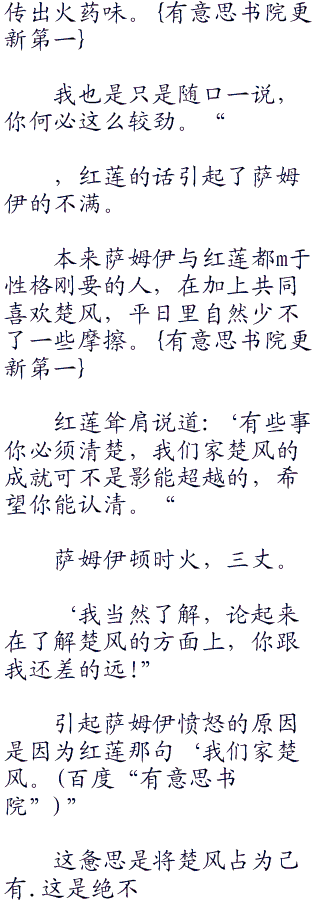 传出火药味。{有意思书院更
新第一}
我也是只是随口一说，
你何必这么较劲。“
，红莲的话引起了萨姆
伊的不满。
本来萨姆伊与红莲都m于
性格刚要的人，在加上共同
喜欢楚风，平日里自然少不
了一些摩擦。{有意思书院更
新第一}
红莲耸肩说道：‘有些事
你必须清楚，我们家楚风的
成就可不是影能超越的，希
望你能认清。“
萨姆伊顿时火，三丈。
‘我当然了解，论起来
在了解楚风的方面上，你跟
我还差的远!”
引起萨姆伊愤怒的原因
是因为红莲那句‘我们家楚
风。(百度“有意思书
院”)”
这惫思是将楚风占为己
有.这是绝不